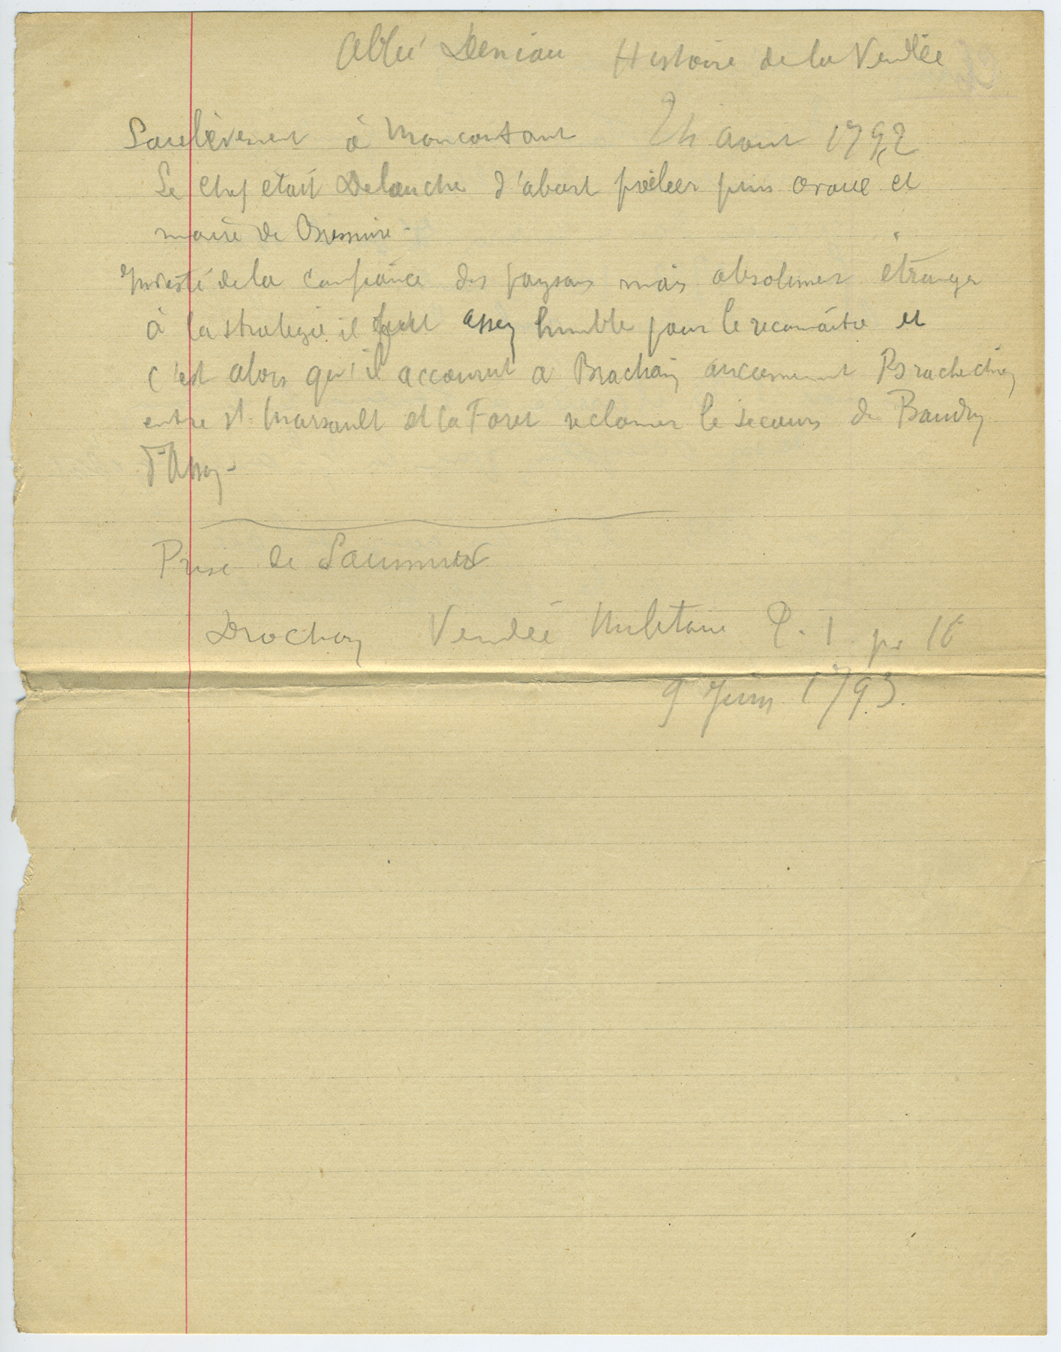 Abbé Deniau Histoire de la Vendée
Soulèvement à Moncoutant 24 aout 1792
Le chef était Delouche d'abord puis avoué et
maire de Bressuire -
Investi de la confiance des paysans mais absolument étranger
à la stratégie il fut assez humble pour le reconnaitre et
c'est alors qu'il accourut a Brachain anciennement Brachechien
entre St Marsault et la Foret reclamer le secours de Baudry
d'Asson -
Prise de Saumur
Drochon Vendée Militaire T. 1 pe 16
9 Juin 1793.